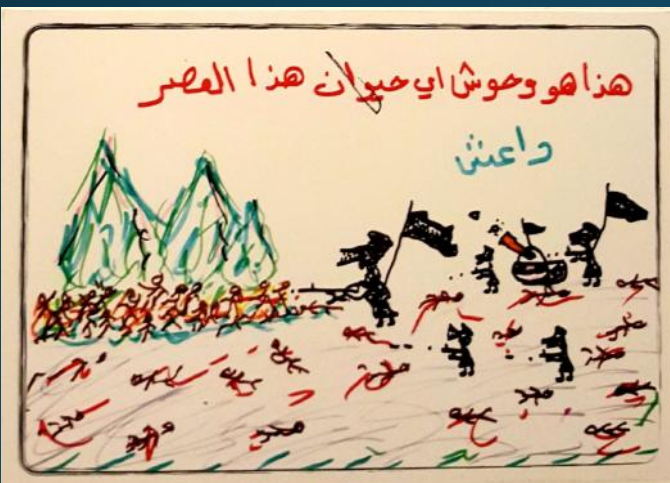 هذا هو وحوش اي حيوان هذا العصر
داعش